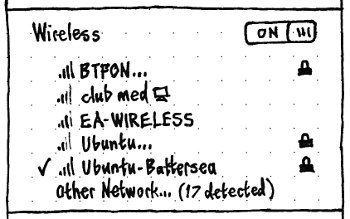 Wireless ON
BTFON...
club med
EA-WIRELESS
Ubuntu...
Ubuntu-Battersea
Other Network... (17 detected)